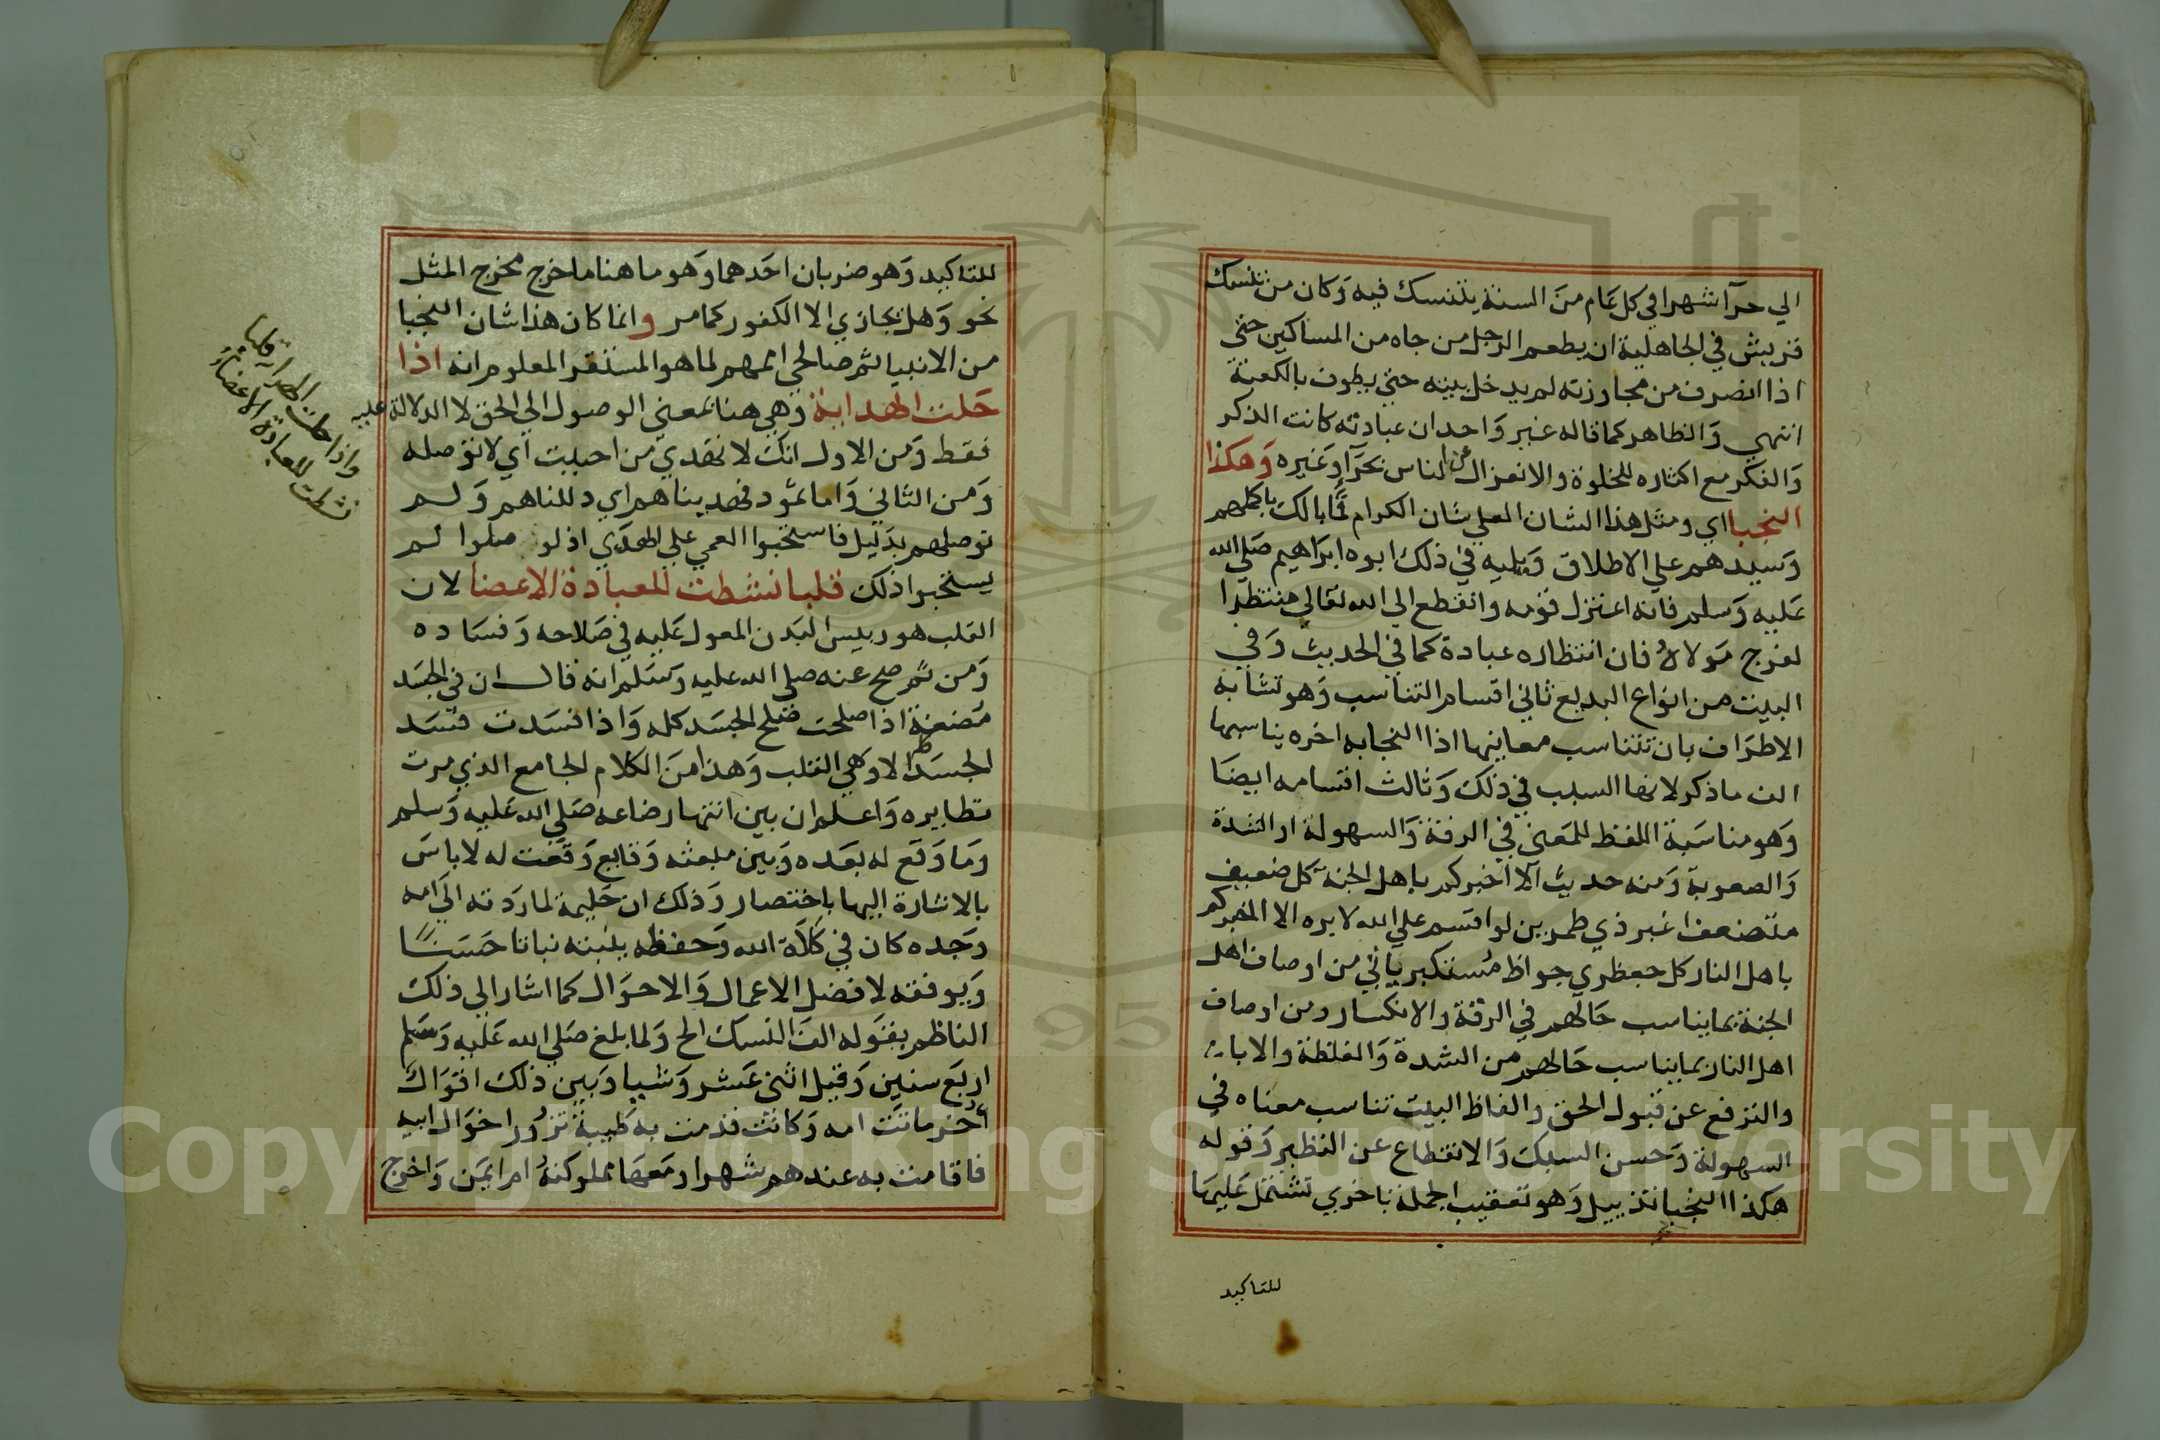 الي حرآ شهرا في كل عام من السنة يتنسك فيه وكان من تنسك
قريش في الجاهلية ان يطعم الرجل من جاه من المساكين حتى
اذا انصرف من مجاورته لم يدخل بيته حتى يطوف بالكعبة
انتهي والظاهر كما قاله غير واحد ان عبادته كانت الذكر
والفكر مع اكثاره للخلوة والانعزال عن الناس بحرآ وغيره وهكذا
النجبا اي ومثل هذا الشان العلي شان الكرام فما بالك باكملهم
وسيدهم علي الاطلاق ويليه في ذلك ابوه ابراهيم صلي الله
عليه وسلم فانه اعتزل قومه وانقطع الي الله تعالي منتظرا
لفرج مولاه فان انتظاره عبادة كما في الحديث وفي
البيت من انواع البديع ثاني اقسام التناسب وهو تشابه
الاطراف بان تتناسب معانيها اذا النجابه اخره يناسبها
الف ماذكر لانها السبب في ذلك وثالث اقسامه ايضا
وهو مناسبة اللفظ للمعني في الرقة والسهولة او الشدة
والصعوبة ومنه حديث آلا اخبركم باهل الجنة كل ضعيف
متضعف اغبر ذي طمرين لو اقسم علي الله لابره الا اخبركم
باهل النار كل جعظري جواظ مستكبر ياتي من اوصاف اهل
الجنة بما يناسب حالهم في الرقة والانكسار ومن اوصاف
اهل النار بما يناسب حالهم من الشدة والغلظة والاباء
والترفع عن قبول الحق والفاظ البيت تناسب معناه في
السهولة وحسن السبك والانقطاع عن النظير وقوله
هكذا النجبا تذييل وهو تعقيب الجملة باخري تشتمل عليها
للتاكيد
للتاكيد وهو ضربان احدهما وهو ما هنا ما خرج مخرج المثل
نحو وهل يجازي الا الكفور كما مر وانما كان هذا شان النجبا
من الانبيا ثم صالحي اممهم لما هو المستقر المعلوم انه اذا
حلت الهداية وهي هنا بمعني الوصول الي الحق لا الدلالة عليه
فقط ومن الاول انك لا تهدي من احببت اي لا توصله
ومن الثاني واما ثمود فهديناهم اي دللناهم ولم
نوصلهم بدليل فاستحبوا العمي علي الهدي اذ لو وصلوا لم
يستحبوا ذلك قلبا نشطت للعبادة الاعضا لان
القلب هو رييس البدن المعول عليه في صلاحه وفساده
ومن ثم صح عنه صلي الله عليه وسلم انه قال ان في الجسد
مضغة اذا صلحت صلح الجسد كله واذا فسدت فسد
الجسد كله الا وهي القلب وهذا من الكلام الجامع الذي مرت
نظايره واعلم ان بين انتها رضاعه صلي الله عليه وسلم
وما وقع له بعده وبين مبعثه وقايع وقعت له لا باس
بالاشارة اليها باختصار وذلك ان حليمة لما ردته الي امه
وجده كان في كلآة الله وحفظه ينبته نباتا حسنا
ويوفقه لافضل الاعمال والاحوال كما اشار الي ذلك
الناظم بقوله الف النسك الخ ولما بلغ صلي الله عليه وسلم
اربع سنين وقيل اثني عشر وشيا وبين ذلك اقوال
اخر ماتت امه وكانت قدمت به طيبة تزور اخوال ابيه
فاقامت به عندهم شهرا ومعها مملوكته ام ايمن واخرج
واذا حلت الهداية قلبا
نشطت للعبادة الاعضاء
Copyright © King Saud University